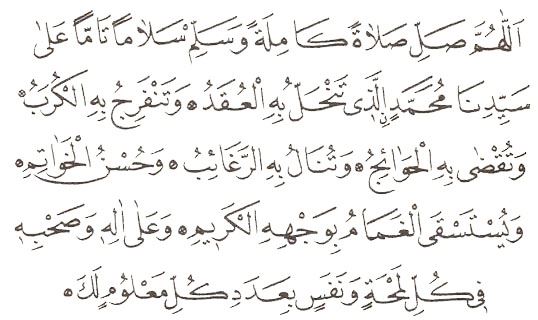 اَللّٰهُمَّ صَلِّ صَلَاةً كَامِلَةً وَسَلِّمْ سَلَامًا تَامًّا عَلٰى
سَيِّدِنَا مُحَمَّدٍ نِالَّذِى تَنْحَلُّ بِهِ الْعُقَدُ ۞ وَتَنْفَرِجُ بِهِ الْكُرَبُ ۞
وَتُقْضٰى بِهِ الْحَوَائِجُ ۞ وَتُنَالُ بِهِ الرَّغَائِبُ ۞ وَحُسْنُ الْخَوَاتِمِ ۞
وَيُسْتَسْقَى الْغَمَامُ بِوَجْهِهِ الْكَرِيمِ ۞ وَعَلٰى اٰلِهِ وَصَحْبِهِ
فِى كُلِّ لَمْحَةٍ وَنَفَسٍ بِعَدَدِ كُلِّ مَعْلُومٍ لَكَ ۞